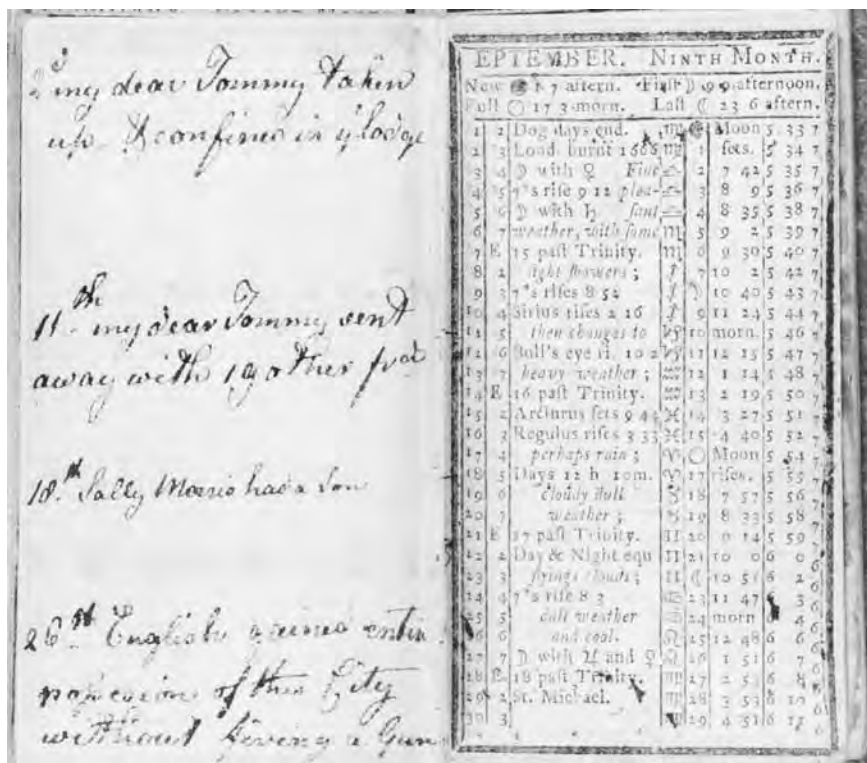 2d my dear Tommy taken
up & confined in ye lodge
11th my dear Tommy sent
away with 19 other
18th Sally Morris had a Son
26th English gained entire
possession of this City
without fireing a Gun
EPTEMBER. NINTH MONTH.
New 1 7 aftern. First ☽ 9 9 afternoon.
Full ○ 17 3 morn. Last ☾ 23 6 aftern.
1 2 Dog days end. ♍ Moon 5 33 7
2 3 Lond. burnt 1666 ♍ 1 sets. 5 34 7
3 4 ☽ with ♀ Fine ♎ 2 7 42 5 35 7
4 5 7*s rise 9 12 plea- ♎ 3 8 9 5 36 7
5 6 ☽ with ♄ sant ♎ 4 8 35 5 38 7
6 7 weather, with some ♏ 5 9 2 5 39 7
7 E 15 past Trinity. ♏ 6 9 30 5 40 7
8 2 light showers; ♐ 7 10 2 5 42 7
9 3 7*s rises 8 52 ♐ ☽ 10 40 5 43 7
10 4 Sirius rises 2 16 ♐ 9 11 24 5 44 7
11 5 then changes to ♑ 10 morn. 5 46 7
12 6 Bull's eye ri. 10 2 ♑ 11 12 15 5 47 7
13 7 heavy weather; ♒ 12 1 14 5 48 7
14 E 16 past Trinity. ♒ 13 2 19 5 50 7
15 2 Arcturus sets 9 44 ♓ 14 3 27 5 51 7
16 3 Regulus rises 3 33 ♓ 15 4 40 5 52 7
17 4 perhaps rain; ♈ ○ Moon 5 54 7
18 5 Days 12 h 10m. ♈ 17 rises. 5 55 7
19 6 cloudy dull ♉ 18 7 57 5 56 7
20 7 weather; ♉ 19 8 33 5 58 7
21 E 17 past Trinity. ♊ 20 9 14 5 59 7
22 2 Day & Night equ ♊ 21 10 0 6 0 6
23 3 flying clouds; ♊ ☾ 10 51 6 2 6
24 4 7*s rise 8 3 ♋ 23 11 47 6 3 6
25 5 dull weather ♋ 24 morn 6 4 6
26 6 and cool. ♌ 25 12 48 6 6 6
27 7 ☽ with ♃ and ♀ ♌ 26 1 51 6 7 6
28 E 18 past Trinity. ♍ 27 2 53 6 8 6
29 2 St. Michael. ♍ 28 3 53 6 10 6
30 3 ♍ 29 4 51 6 11 6